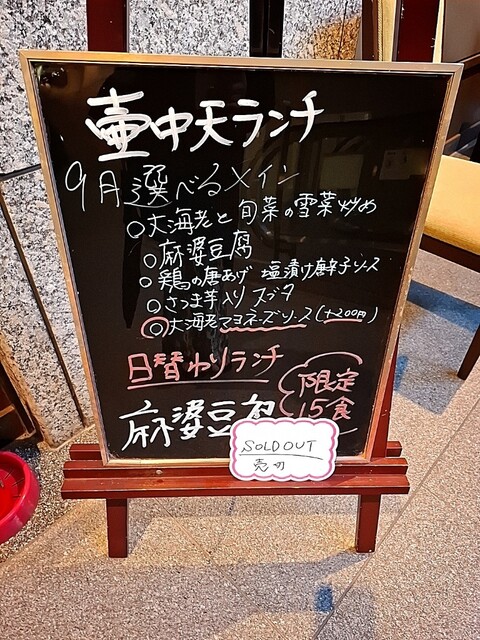 壷中天ランチ
9月選べるメイン
○大海老と旬菜の雪菜炒め
○麻婆豆腐
○鶏の唐あげ 塩漬け唐辛子ソース
○さつま芋入りスブタ
◎大海老マヨネーズソース(+200円)
日替わりランチ
限定
15食
麻婆豆腐
SOLD OUT
売切